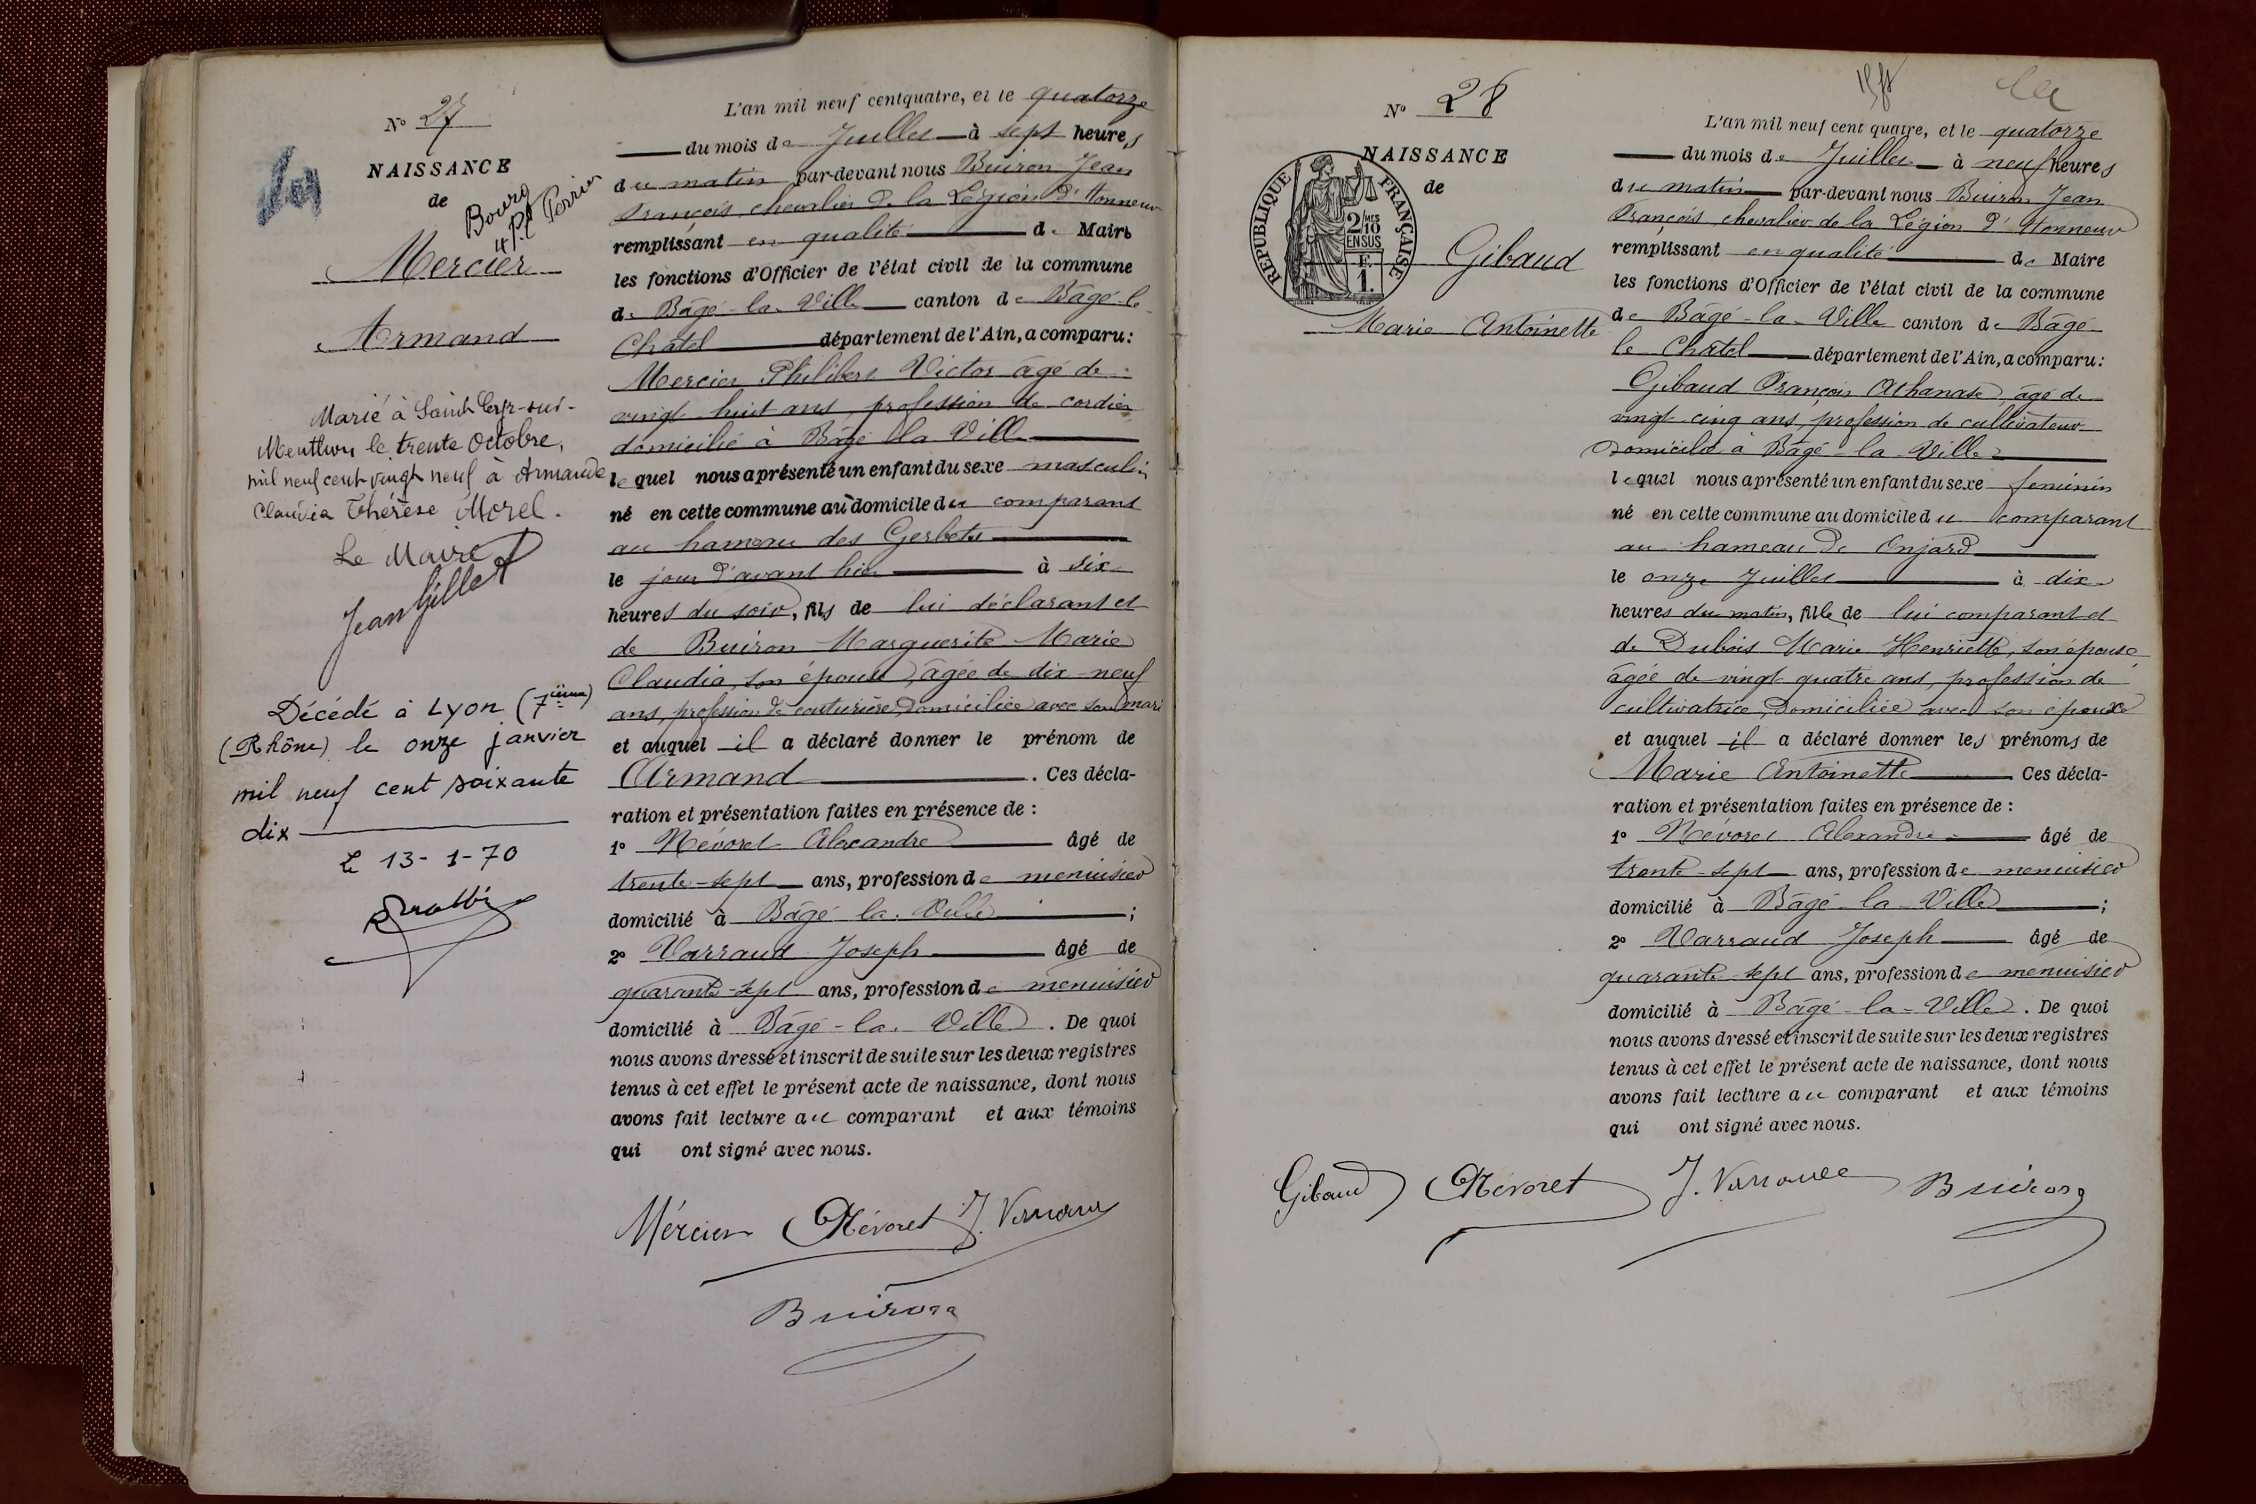 N° 27
NAISSANCE
de
Bourg
Mercier
Armand
Marié à Saint Cyr-sur-
Menthon le trente Octobre,
mil neuf cent vingt neuf à Armande
Claudia Thérèse Morel.
Le Maire
Jean Gillet
Décédé à Lyon (7ième)
(Rhône) le onze janvier
mil neuf cent soixante
dix
Le 13-1-70
L'an mil neuf cent quatre, et le quatorze
du mois de Juillet à sept heures
du matin par-devant nous Buiron Jean
François, chevalier de la Légion d'Honneur
remplissant en qualité de Maire
les fonctions d'Officier de l'état civil de la commune
de Bâgé-la-Ville canton de Bâgé-le-
Châtel département de l'Ain, a comparu:
Mercier Philibert Victor âgé de
vingt-huit ans, profession de cordier
domicilié à Bâgé la Ville
lequel nous a présenté un enfant du sexe masculin
né en cette commune au domicile du comparant
au hameau des Gerbets
le jour d'avant hier à six
heures du soir, fils de lui déclarant et
de Buiron Marguerite Marie
Claudia, son épouse, âgée de dix neuf
ans, profession de couturière, domiciliée avec son mari
et auquel il a déclaré donner le prénom de
Armand. Ces décla-
ration et présentation faites en présence de :
1° Névoret Alexandre âgé de
trente-sept ans, profession de menuisier
domicilié à Bâgé la Ville ;
2° Varraud Joseph âgé de
quarante-sept ans, profession de menuisier
domicilié à Bâgé-la-Ville. De quoi
nous avons dressé et inscrit de suite sur les deux registres
tenus à cet effet le présent acte de naissance, dont nous
avons fait lecture au comparant et aux témoins
qui ont signé avec nous.
Mércier Névoret J. Varraud
Buiron
N° 28
NAISSANCE
de
REPUBLIQUE FRANÇAISE
2 MES
10
EN SUS
F.
1.
Gibaud
Marie Antoinette
L'an mil neuf cent quatre, et le quatorze
du mois de Juillet à neuf heures
du matin par-devant nous Buiron Jean
François, chevalier de la Légion d'Honneur
remplissant en qualité de Maire
les fonctions d'Officier de l'état civil de la commune
de Bâgé-la-Ville canton de Bâgé
le Châtel département de l'Ain, a comparu:
Gibaud François Athanase, âgé de
vingt cinq ans, profession de cultivateur
domicilié à Bâgé-la-Ville
lequel nous a présenté un enfant du sexe feminin
né en cette commune au domicile du comparant
au hameau de Onjard
le onze Juillet à dix
heures du matin, fille de lui comparant et
de Dubois Marie Henriette, son épouse,
âgée de vingt quatre ans, profession de
cultivatrice, domiciliée avec son époux
et auquel il a déclaré donner les prénoms de
Marie Antoinette Ces décla-
ration et présentation faites en présence de :
1° Névoret Alexandre âgé de
trente-sept ans, profession de menuisier
domicilié à Bâgé-la-Ville ;
2° Varraud Joseph âgé de
quarante-sept ans, profession de menuisier
domicilié à Bâgé-la-Ville. De quoi
nous avons dressé et inscrit de suite sur les deux registres
tenus à cet effet le présent acte de naissance, dont nous
avons fait lecture au comparant et aux témoins
qui ont signé avec nous.
Gibaud Névoret J. Varraud Buiron